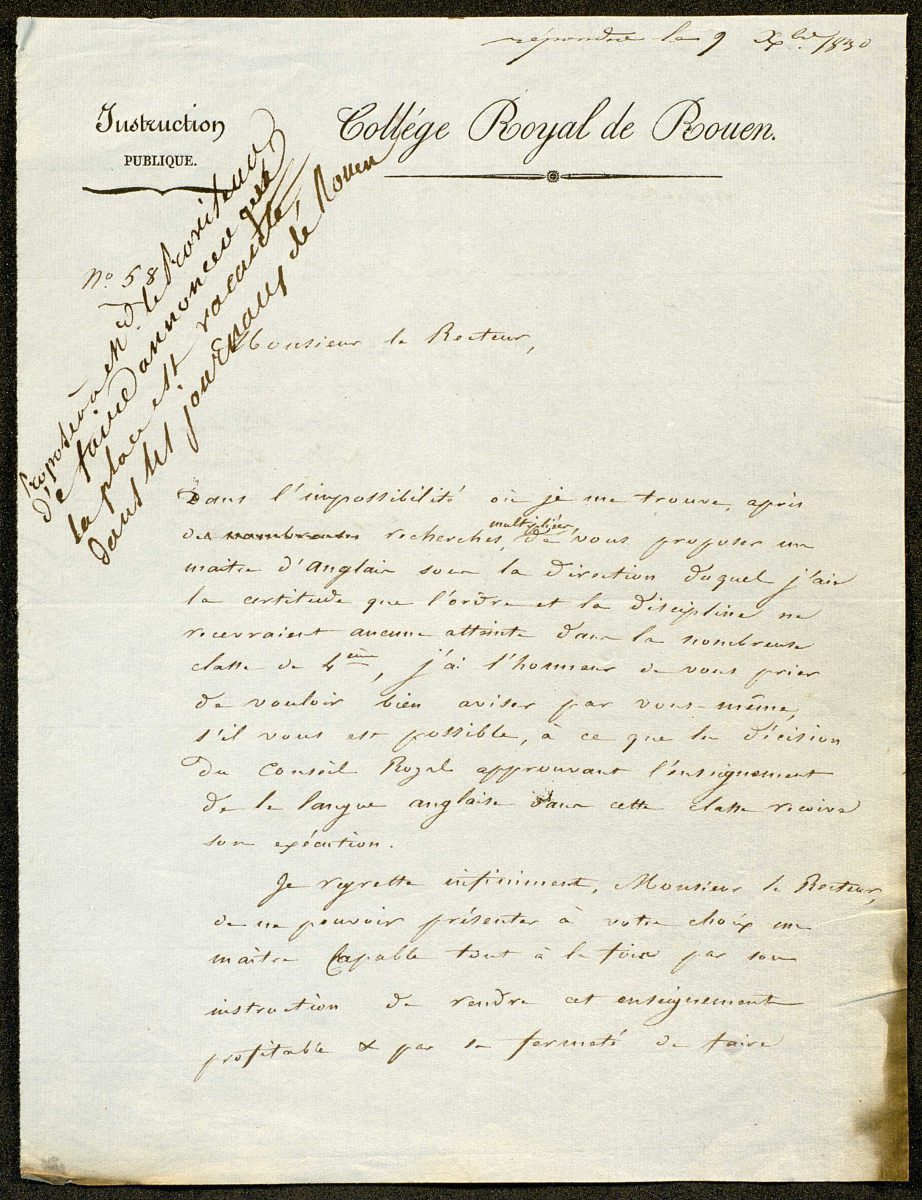 répondre le 9 Xbre 1830
Instruction
PUBLIQUE.
Collége Royal de Rouen.
No. 58
Proposer à Mr. le Proviseur
de faire annoncer que
la place est vacante,
dans les journaux de Rouen
Monsieur le Recteur,
Dans l'impossibilité où je me trouve, après
des nombreuses recherches multipliées, de vous proposer un
maitre d'anglais sous la direction duquel j'aie
la certitude que l'ordre et la discipline ne
recevraient aucune atteinte dans la nombreuse
classe de 4eme, j'ai l'honneur de vous prier
de vouloir bien aviser par vous-même,
s'il vous est possible, à ce que la décision
du Conseil Royal approuvant l'enseignement
de la langue anglaise dans cette classe reçoive
son exécution.
Je regrette infiniment, Monsieur le Recteur,
de ne pouvoir présenter à votre choix un
maître capable tout à la fois par son
instruction de rendre cet enseignement
profitable & par sa fermeté de faire